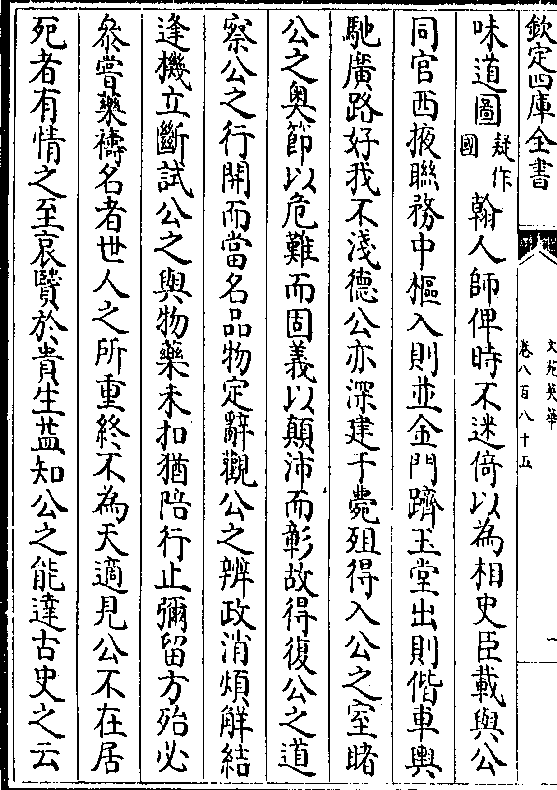 欽定四庫全書
文苑英華
卷八百八十五
一
味道圖疑作國翰人師俾時不迷倚以為相史臣載與公
同官西掖聮務中樞入則並金門躋玉堂出則偕車輿
馳廣路好我不淺德公亦深建于薨殂得入公之室睹
公之奥節以危難而固義以顛沛而彰故得復公之道
察公之行開而當名品物定辭觀公之辨政消煩解結
逢機立斷試公之與物藥未扣猶陪行止彌留方殆必
叅嘗藥禱名者世人之所重終不為天適見公不在居
死者有情之至哀贒於貴生葢知公之能達古史之云